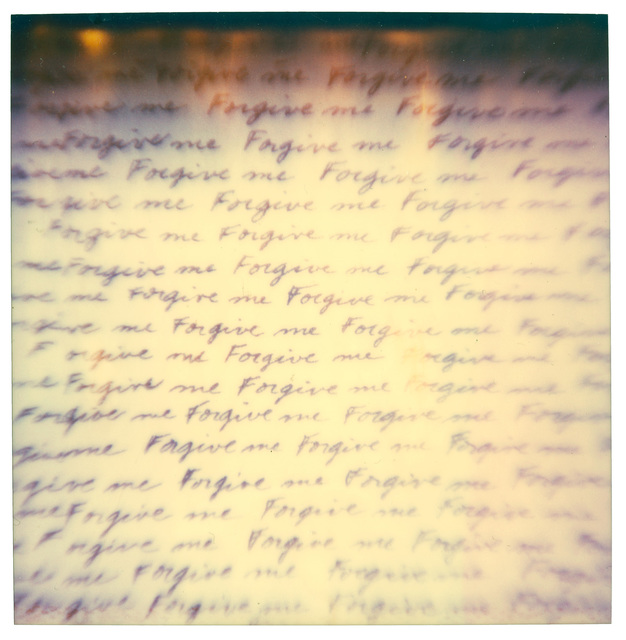 me Forgive me Forgive me Forgive
Forgive me Forgive me Forgive me
me Forgive me Forgive me Forgive me
me Forgive me Forgive me Forgive
Forgive me Forgive me Forgive me
Forgive me Forgive me Forgive me F
me Forgive me Forgive me Forgive me
me Forgive me Forgive me Forgive me
me Forgive me Forgive me Forgive
Forgive me Forgive me Forgive me
me Forgive me Forgive me Forgive me
Forgive me Forgive me Forgive me
give me Forgive me Forgive me Forgive me
give me Forgive me Forgive me
me Forgive me Forgive me Forgive
Forgive me Forgive me Forgive me
me Forgive me Forgive me
Forgive Forgive me Forgive me